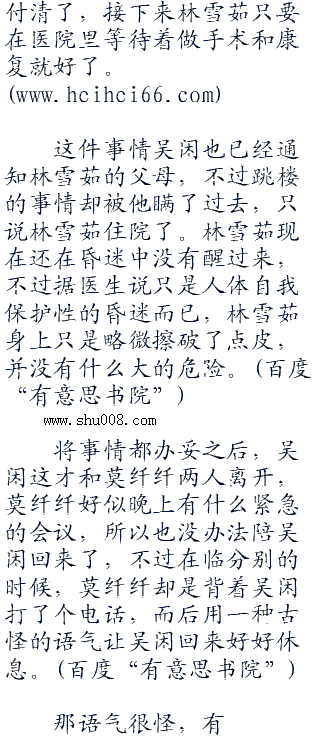 付清了，接下来林雪茹只要
在医院里等待着做手术和康
复就好了。
(www.hcihci66.com)
这件事情吴闲也已经通
知林雪茹的父母，不过跳楼
的事情却被他瞒了过去，只
说林雪茹住院了。林雪茹现
在还在昏迷中没有醒过来，
不过据医生说只是人体自我
保护性的昏迷而已，林雪茹
身上只是略微擦破了点皮，
并没有什么大的危险。(百度
“有意思书院”)
www.shu008.com
将事情都办妥之后，吴
闲这才和莫纤纤两人离开，
莫纤纤好似晚上有什么紧急
的会议，所以也没办法陪吴
闲回来了，不过在临分别的
时候，莫纤纤却是背着吴闲
打了个电话，而后用一种古
怪的语气让吴闲回来好好休
息。(百度“有意思书院”)
那语气很怪，有